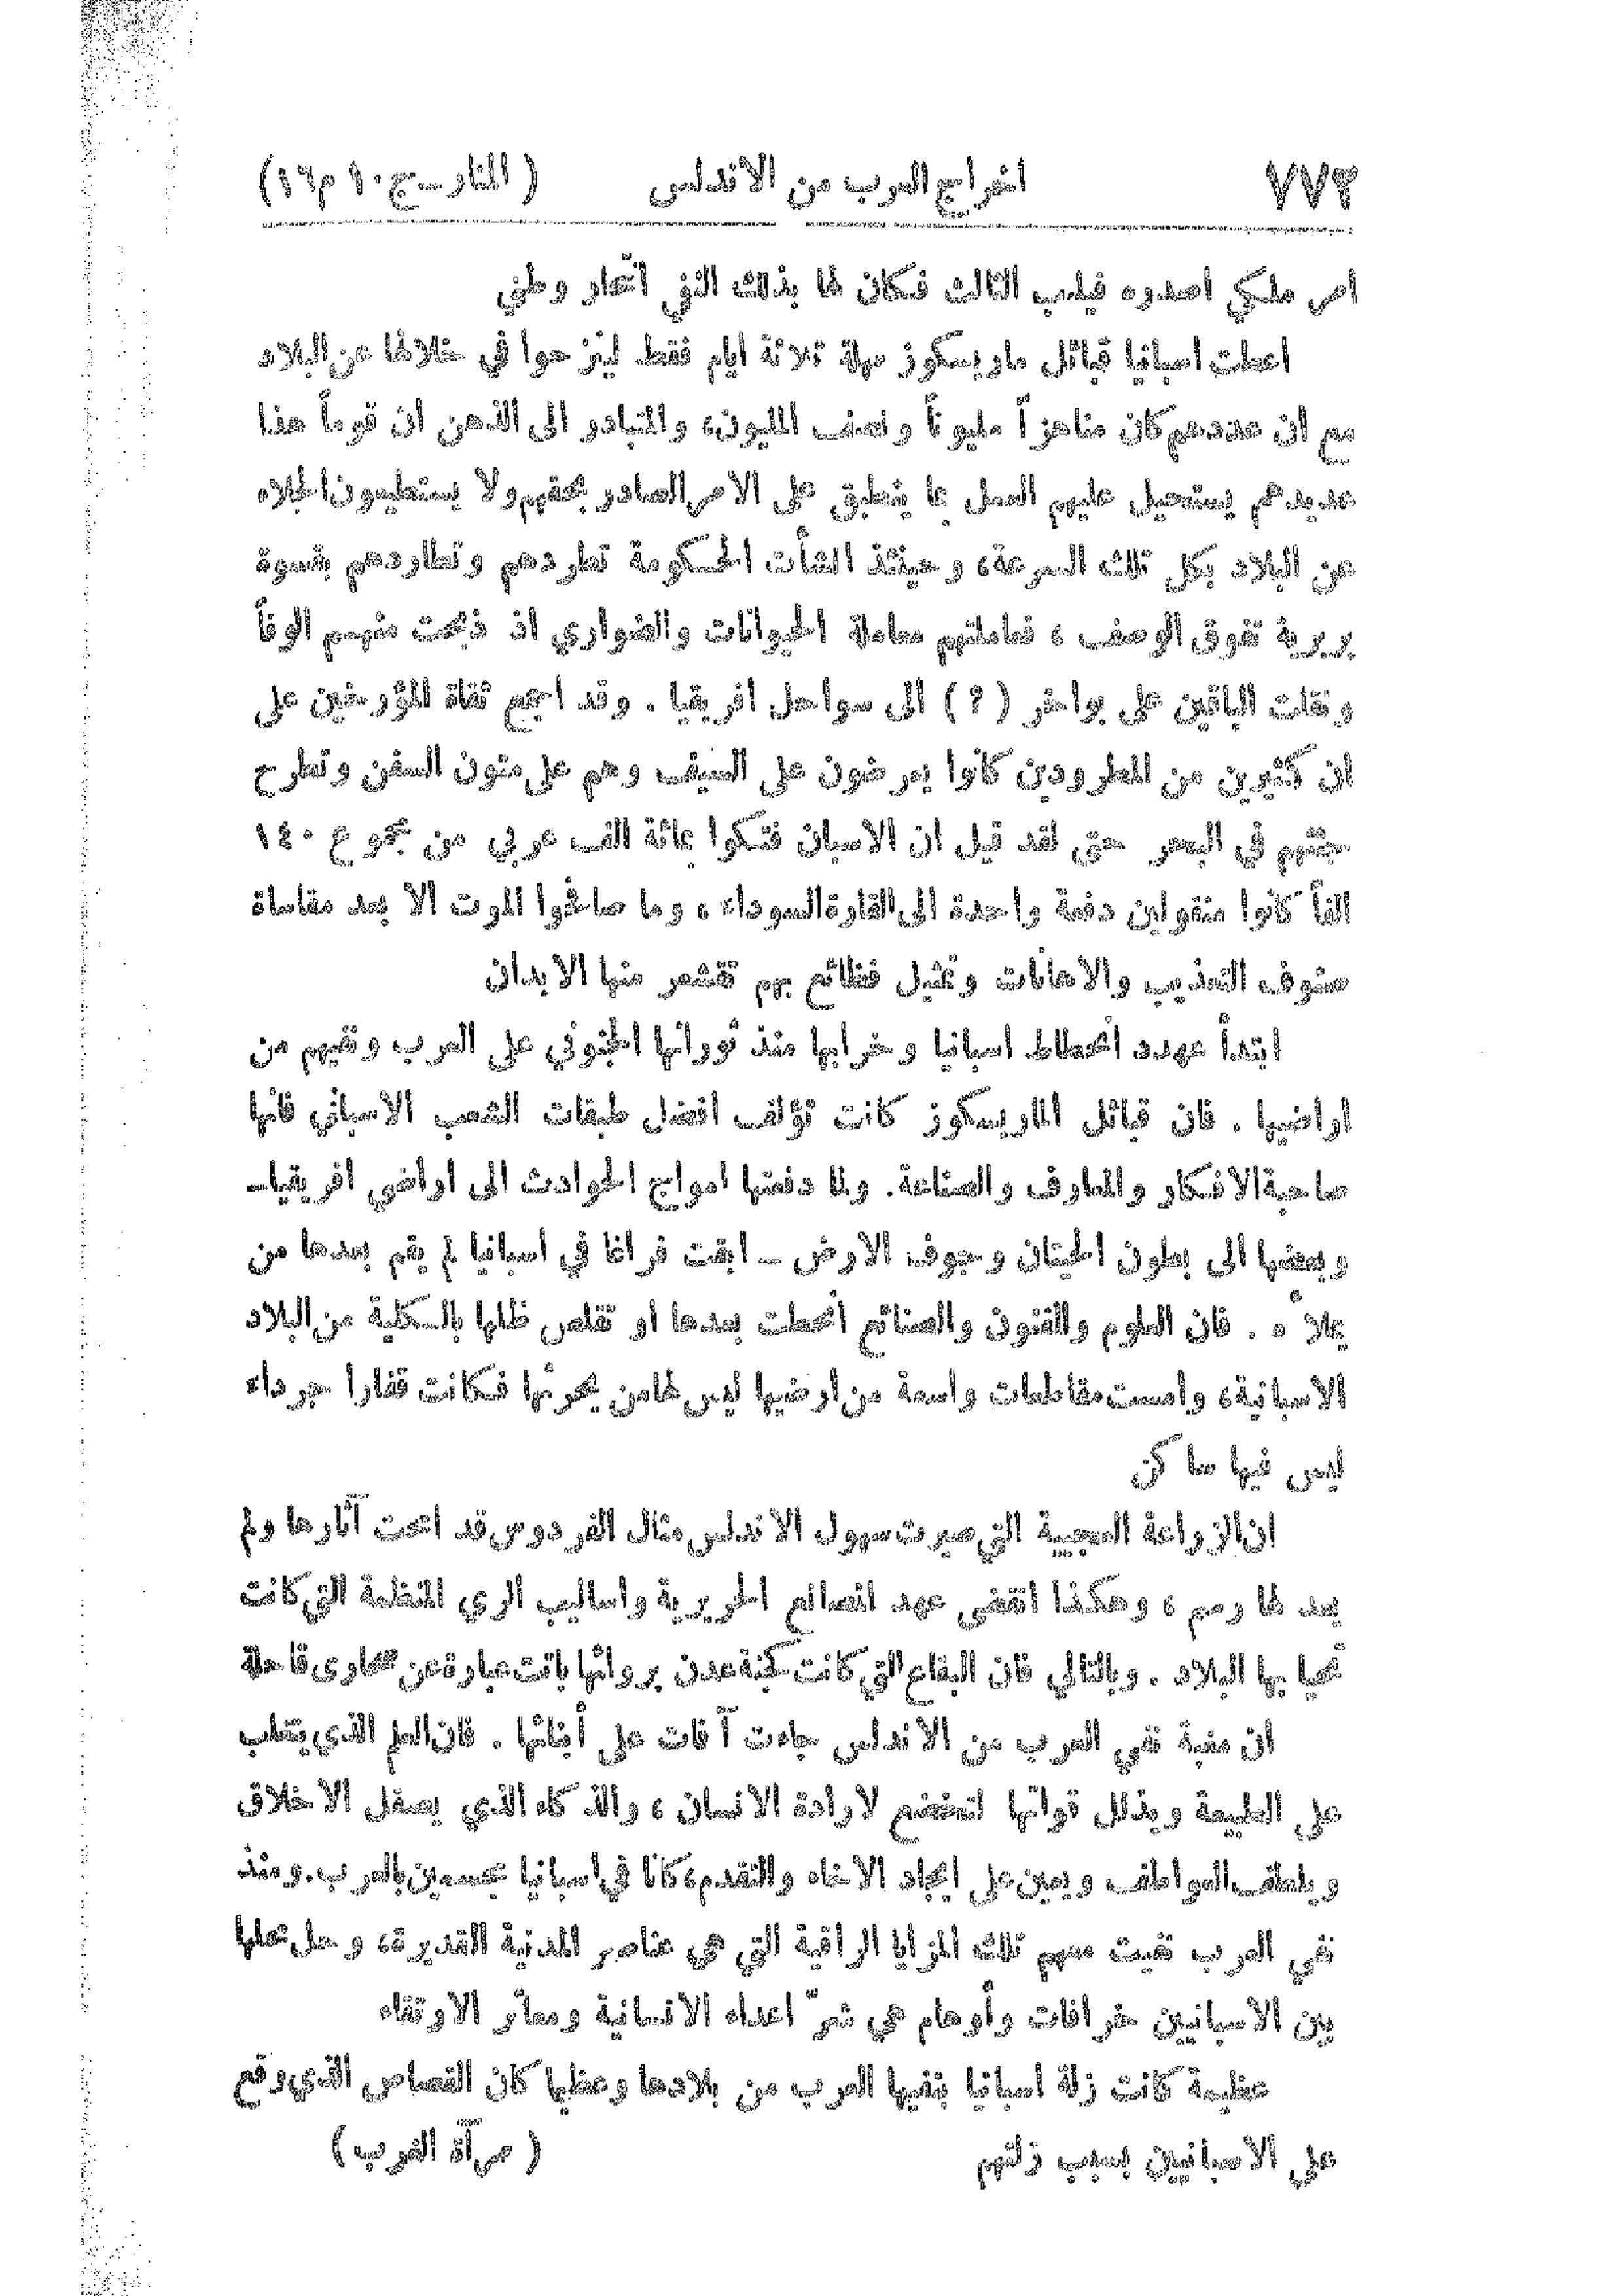 ٧٧٢ اخراج العرب من الاندلس ( المنار ـ ج ١٠ م ١٦ )
امر ملكي اصدره فيليب الثالث فكان لها بذلك النفي انتحار وطني
اعطت اسبانيا قبائل ماريسكوز مهلة ثلاثة ايام فقط لينزحوا في خلالها عن البلاد
مع ان عددهم كان مناهزاً مليوناً ونصف المليون، والمتبادر الى الذهن ان قوماً هذا
عديدهم يستحيل عليهم العمل بما ينطبق على الامر الصادر بحقهم ولا يستطيعون الجلاء
عن البلاد بكل تلك السرعة، وحينئذ انشأت الحكومة تطردهم وتطاردهم بقسوة
بربرية تفوق الوصف ، فعاملتهم معاملة الحيوانات والضواري اذ ذبحت منهم الوفاً
ونقلت الباقين على بواخر ( ؟ ) الى سواحل افريقيا . وقد اجمع ثقاة المؤرخين على
ان كثيرين من المطرودين كانوا يعرضون على السيف وهم على متون السفن وتطرح
جثثهم في البحر حتى لقد قيل ان الاسبان فتكوا بمائة الف عربي من مجموع ١٤٠
الفاً كانوا منقولين دفعة واحدة الى القارة السوداء ، وما صافحوا الموت الا بعد مقاساة
صنوف التعذيب والاهانات وتمثيل فظائع بهم تقشعر منها الابدان
ابتدأ عهد انحطاط اسبانيا وخرابها منذ ثورانها الجنوني على العرب ونفيهم من
اراضيها . فان قبائل الماريسكوز كانت تؤلف افضل طبقات الشعب الاسباني فانها
صاحبة الافكار والمعارف والصناعة. ولما دفعتها امواج الحوادث الى اراضي افريقيا ـ
وبعضها الى بطون الحيتان وجوف الارض ـ ابقت فراغا في اسبانيا لم يقم بعدها من
يملأه . فان العلوم والفنون والصنائع أنحطت بعدها او تقلص ظلها بالكلية عن البلاد
الاسبانية، وامست مقاطعات واسعة من ارضيها ليس لها من يحرثها فكانت قفارا جرداء
ليس فيها ساكن
ان الزراعة العجيبة التي صيرت سهول الاندلس مثال الفردوس قد امحت آثارها ولم
يعد لها رسم ، وهكذا انقضى عهد الصنائع الحريرية واساليب الري المنظمة التي كانت
تحيا بها البلاد . وبالتالي فان البقاع التي كانت كجنة عدن بروائها باتت عبارة عن صحارى قاحلة
ان مغبة نفي العرب من الاندلس جاءت آفات على أبنائها . فان العلم الذي يتغلب
على الطبيعة ويذلل قواتها لتخضع لارادة الانسان ، والذكاء الذي يصقل الاخلاق
ويلطف العواطف ويعين على ايجاد الاخاء والتقدم، كانا في اسبانيا مجسمين بالعرب. ومنذ
نفي العرب نفيت معهم تلك المزايا الراقية التي هي عناصر المدنية القديرة، وحل محلها
بين الاسبانيين خرافات وأوهام هي شرّ اعداء الانسانية ومعاثر الارتقاء
عظيمة كانت زلة اسبانيا بنفيها العرب من بلادها وعظيما كان القصاص الذي وقع
على الاسبانيين بسبب زلتهم ( مرآة الغرب )